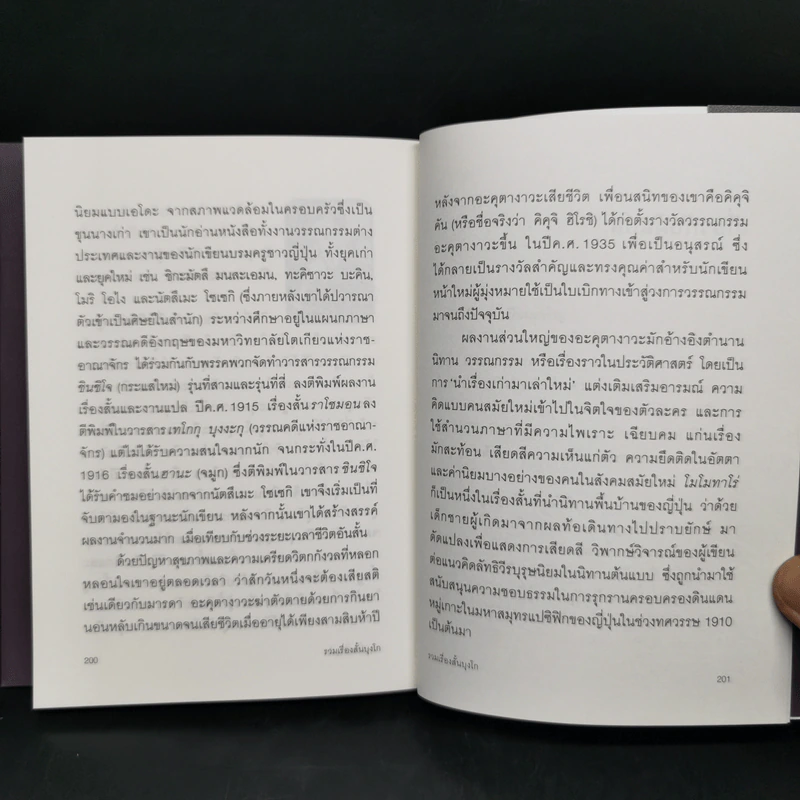 นิยมแบบเอโดะ จากสภาพแวดล้อมในครอบครัวซึ่งเป็น
ขุนนางเก่า เขาเป็นนักอ่านหนังสือทั้งงานวรรณกรรมต่าง
ประเทศและงานของนักเขียนบรมครูชาวญี่ปุ่น ทั้งยุคเก่า
และยุคใหม่ เช่น ชิกะมัตสึ มนสะเอมน, ทะคิซาวะ บะคิน,
โมริ โอไง และนัตสึเมะ โซเซกิ (ซึ่งภายหลังเขาได้ปวารณา
ตัวเข้าเป็นศิษย์ในสำนัก) ระหว่างศึกษาอยู่ในแผนกภาษา
และวรรณคดีอังกฤษของมหาวิทยาลัยโตเกียวแห่งราช-
อาณาจักร ได้ร่วมกันกับพรรคพวกจัดทำวารสารวรรณกรรม
ชินชิโจ (กระแสใหม่) รุ่นที่สามและรุ่นที่สี่ ลงตีพิมพ์ผลงาน
เรื่องสั้นและงานแปล ปีค.ศ. 1915 เรื่องสั้น ราโชมอน ลง
ตีพิมพ์ในวารสาร เทโกกุ บุงงะกุ (วรรณคดีแห่งราชอาณา-
จักร) แต่ไม่ได้รับความสนใจมากนัก จนกระทั่งในปีค.ศ.
1916 เรื่องสั้น ฮานะ (จมูก) ซึ่งตีพิมพ์ในวารสาร ชินชิโจ
ได้รับคำชมอย่างมากจากนัตสึเมะ โซเซกิ เขาจึงเริ่มเป็นที่
จับตามองในฐานะนักเขียน หลังจากนั้นเขาได้สร้างสรรค์
ผลงานจำนวนมาก เมื่อเทียบกับช่วงระยะเวลาชีวิตอันสั้น
ด้วยปัญหาสุขภาพและความเครียดวิตกกังวลที่หลอก
หลอนใจเขาอยู่ตลอดเวลา ว่าสักวันหนึ่งจะต้องเสียสติ
เช่นเดียวกับมารดา อะคุตางาวะฆ่าตัวตายด้วยการกินยา
นอนหลับเกินขนาดจนเสียชีวิตเมื่ออายุได้เพียงสามสิบห้าปี
200
รวมเรื่องสั้นบุงโก
หลังจากอะคุตางาวะเสียชีวิต เพื่อนสนิทของเขาคือคิคุจิ
คัน (หรือชื่อจริงว่า คิคุจิ ฮิโรชิ) ได้ก่อตั้งรางวัลวรรณกรรม
อะคุตางาวะขึ้น ในปีค.ศ. 1935 เพื่อเป็นอนุสรณ์ ซึ่ง
ได้กลายเป็นรางวัลสำคัญและทรงคุณค่าสำหรับนักเขียน
หน้าใหม่ผู้มุ่งหมายใช้เป็นใบเบิกทางเข้าสู่วงการวรรณกรรม
มาจนถึงปัจจุบัน
ผลงานส่วนใหญ่ของอะคุตางาวะมักอ้างอิงตำนาน
นิทาน วรรณกรรม หรือเรื่องราวในประวัติศาสตร์ โดยเป็น
การ 'นำเรื่องเก่ามาเล่าใหม่' แต่งเติมเสริมอารมณ์ ความ
คิดแบบคนสมัยใหม่เข้าไปในจิตใจของตัวละคร และการ
ใช้สำนวนภาษาที่มีความไพเราะ เฉียบคม แก่นเรื่อง
มักสะท้อน เสียดสีความเห็นแก่ตัว ความยึดติดในอัตตา
และค่านิยมบางอย่างของคนในสังคมสมัยใหม่ โมโมทาโร่
ก็เป็นหนึ่งในเรื่องสั้นที่นำนิทานพื้นบ้านของญี่ปุ่น ว่าด้วย
เด็กชายผู้เกิดมาจากผลท้อเดินทางไปปราบยักษ์ มา
ดัดแปลงเพื่อแสดงการเสียดสี วิพากษ์วิจารณ์ของผู้เขียน
ต่อแนวคิดลัทธิวีรบุรุษนิยมในนิทานต้นแบบ ซึ่งถูกนำมาใช้
สนับสนุนความชอบธรรมในการรุกรานครอบครองดินแดน
หมู่เกาะในมหาสมุทรแปซิฟิกของญี่ปุ่นในช่วงทศวรรษ 1910
เป็นต้นมา
รวมเรื่องสั้นบุงโก
201